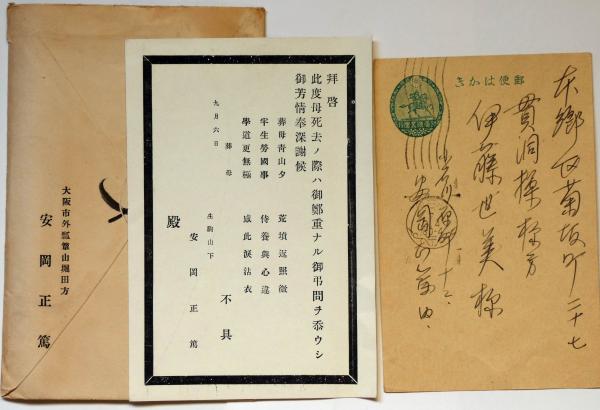 郵便はかき
本郷区菊坂町二十七
貫洞操様方
伊藤世美様
拝啓
此度母死去ノ際ハ御鄭重ナル御弔問ヲ忝ウシ
御芳情奉深謝候
葬母青山夕 荒墳返照微
半生労国事 侍養與心違
學道更無極 慮此涙沾衣
不具
九月六日
葬母
生駒山下
安岡正篤
殿
大阪市外瓢箪山堀田方
安岡正篤